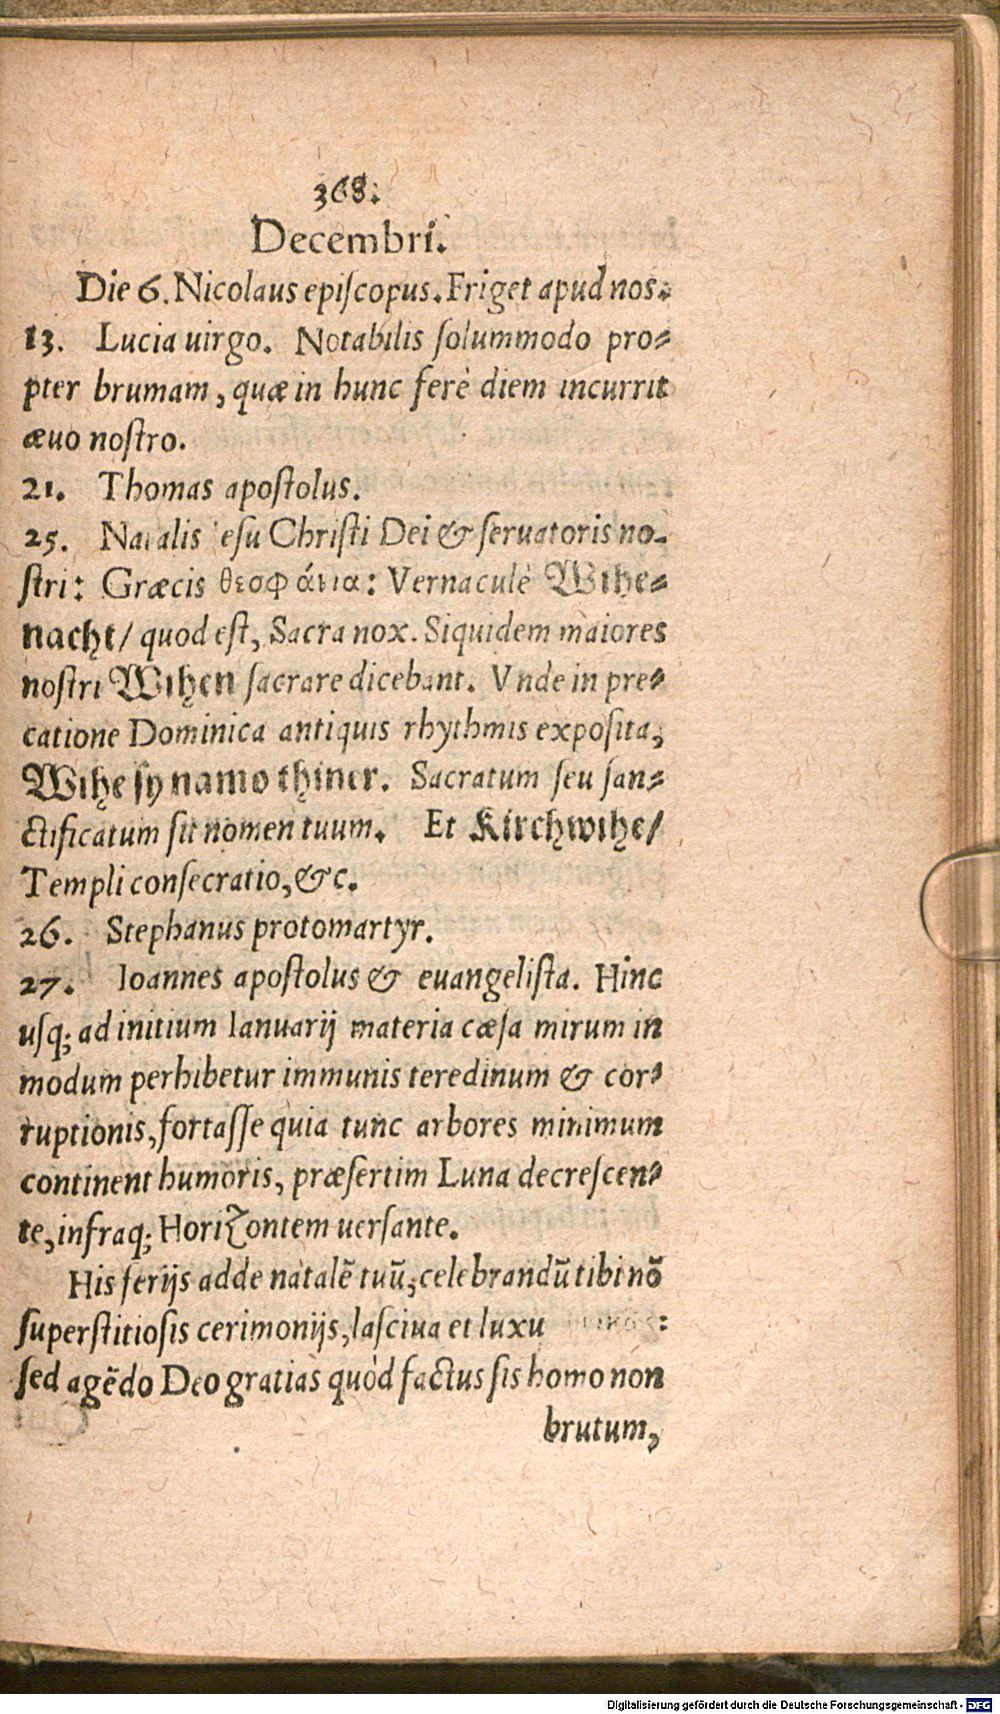 368.
Decembri.
Die 6. Nicolaus episcopus. Friget apud nos.
13. Lucia uirgo. Notabilis ſolummodo pro-
pter brumam, quæ in hunc ferè diem incurrit
æuo noſtro.
21. Thomas apoſtolus.
25. Natalis Ieſu Chriſti Dei & ſeruatoris no-
ſtri: Græcis θεοφάνια: Vernaculè Wihe-
nacht/ quod eſt, Sacra nox. Siquidem maiores
noſtri Wihen ſacrare dicebant. Vnde in pre-
catione Dominica antiquis rhythmis expoſita,
Wihe ſy namo thiner. Sacratum ſeu ſan-
ctificatum ſit nomen tuum. Et Kirchwihe/
Templi conſecratio, &c.
26. Stephanus protomartyr.
27. Ioannes apoſtolus & euangeliſta. Hinc
uſq; ad initium Ianuarij materia cæſa mirum in
modum perhibetur immunis teredinum & cor-
ruptionis, fortaſſe quia tunc arbores minimum
continent humoris, præſertim Luna decreſcen-
te, infraq; Horizontem uerſante.
His ferijs adde natalē tuū, celebrandū tibi nō
ſuperſtitioſis cerimonijs, laſciua et luxu
ſed agēdo Deo gratias quòd factus ſis homo non
brutum,
Digitalisierung gefördert durch die Deutsche Forschungsgemeinschaft - DFG